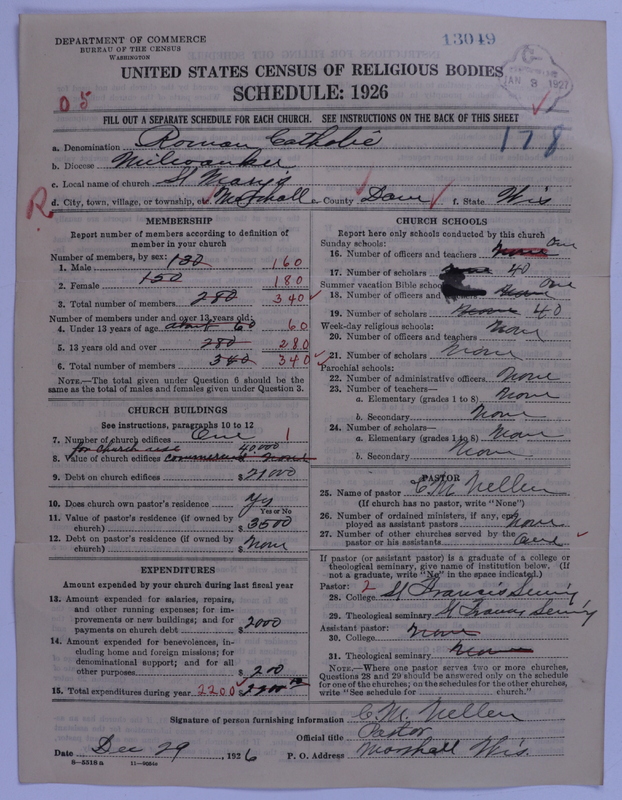 DEPARTMENT OF COMMERCE
BUREAU OF THE CENSUS
WASHINGTON
13049
JAN 3 1927
UNITED STATES CENSUS OF RELIGIOUS BODIES
SCHEDULE: 1926
05
FILL OUT A SEPARATE SCHEDULE FOR EACH CHURCH. SEE INSTRUCTIONS ON THE BACK OF THIS SHEET
178
a. Denomination Roman Catholic
b. Diocese Milwaukee
c. Local name of church St Mary's
R
d. City, town, village, or township, etc. Marshall e. County Dane f. State Wis
MEMBERSHIP
Report number of members according to definition of
member in your church
Number of members, by sex:
1. Male 130 160
2. Female 150 180
3. Total number of members 280 340
Number of members under and over 13 years old:
4. Under 13 years of age about 60 60
5. 13 years old and over 280 280
6. Total number of members 340 340
NOTE.—The total given under Question 6 should be the
same as the total of males and females given under Question 3.
CHURCH BUILDINGS
See instructions, paragraphs 10 to 12
7. Number of church edifices One 1
for church use 40000
8. Value of church edifices
9. Debt on church edifices $ 21000
10. Does church own pastor's residence
Yes or No
11. Value of pastor's residence (if owned by
church) $ 3500
12. Debt on pastor's residence (if owned by
church) $ None
EXPENDITURES
Amount expended by your church during last fiscal year
13. Amount expended for salaries, repairs,
and other running expenses; for im-
provements or new buildings; and for
payments on church debt $ 2000
14. Amount expended for benevolences, in-
cluding home and foreign missions; for
denominational support; and for all
other purposes $ 200
15. Total expenditures during year 2200 $
CHURCH SCHOOLS
Report here only schools conducted by this church
Sunday schools:
16. Number of officers and teachers None One
17. Number of scholars None 40
Summer vacation Bible schools:
18. Number of officers and None One
19. Number of scholars None 40
Week-day religious schools:
20. Number of officers and teachers None
21. Number of scholars None
Parochial schools:
22. Number of administrative officers None
23. Number of teachers—
a. Elementary (grades 1 to 8) None
b. Secondary None
24. Number of scholars—
a. Elementary (grades 1 to 8) None
b. Secondary None
PASTOR
25. Name of pastor C M Nellen
(If church has no pastor, write "None")
26. Number of ordained ministers, if any, em-
ployed as assistant pastors None
27. Number of other churches served by the
pastor or his assistants
If pastor (or assistant pastor) is a graduate of a college or
theological seminary, give name of institution below. (If
not a graduate, write "No" in the space indicated.)
Pastor: 2
28. College St Francis
29. Theological seminary St Francis
Assistant pastor:
30. College None
31. Theological seminary None
NOTE.—Where one pastor serves two or more churches,
Questions 28 and 29 should be answered only on the schedule
for one of the churches; on the schedules for the other churches,
write "See schedule for church."
Signature of person furnishing information C. M. Nellen
Official title Pastor
Date Dec 29, 1926 P. O. Address Marshall Wis.
8—5518a